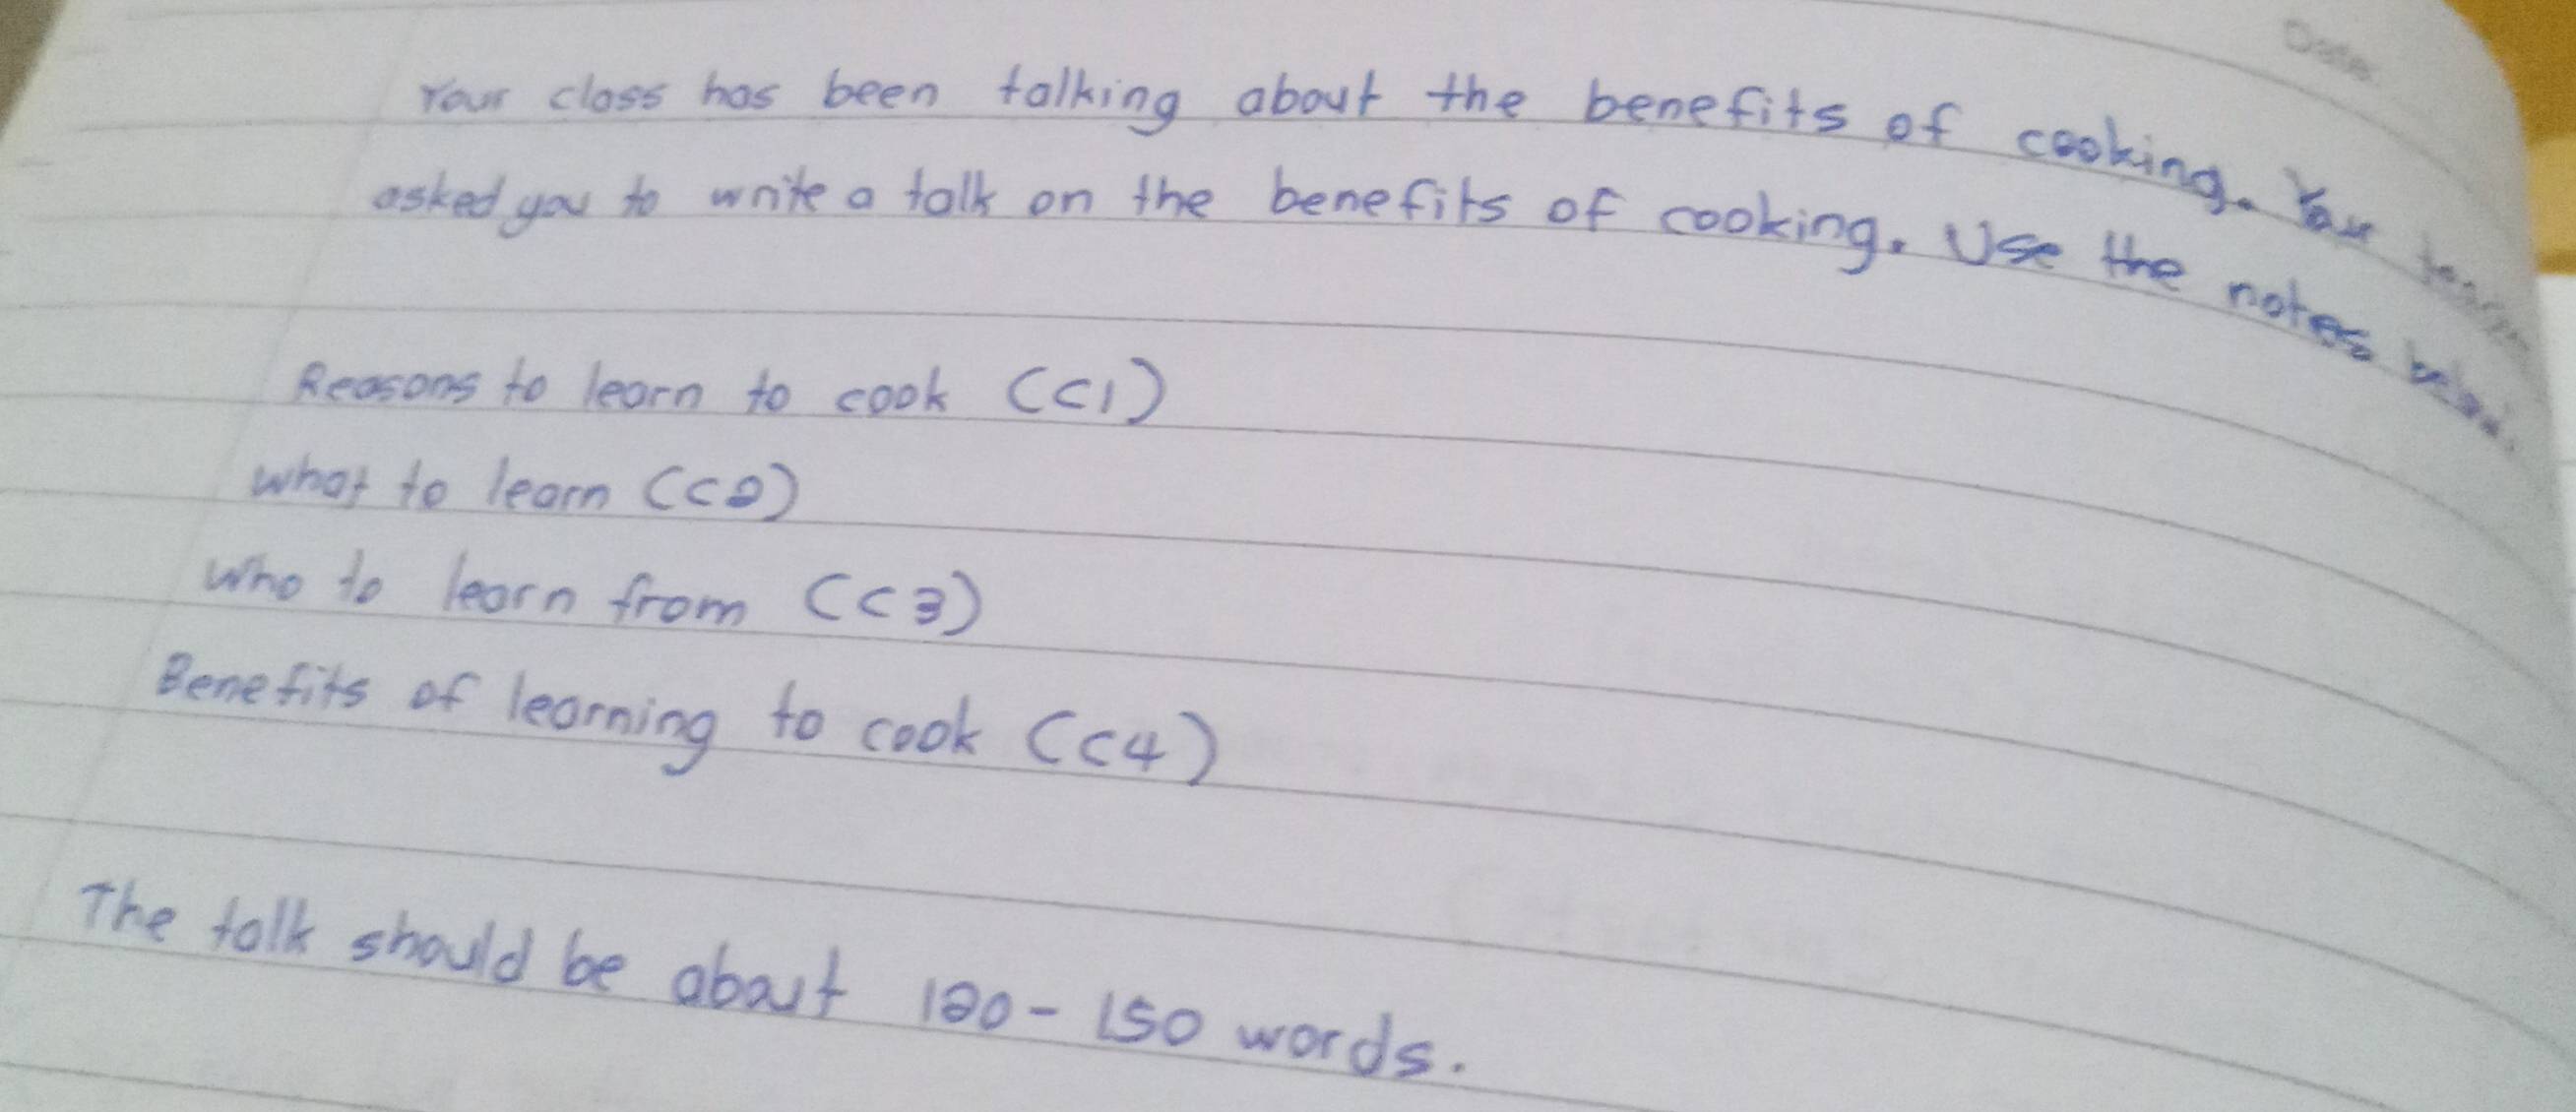 Date:
Your class has been talking about the benefits of cooking. Your teacher
asked you to write a talk on the benefits of cooking. Use the notes below.
Reasons to learn to cook (C1)
What to learn (C2)
Who to learn from (C3)
Benefits of learning to cook (C4)
The talk should be about 120 - 150 words.